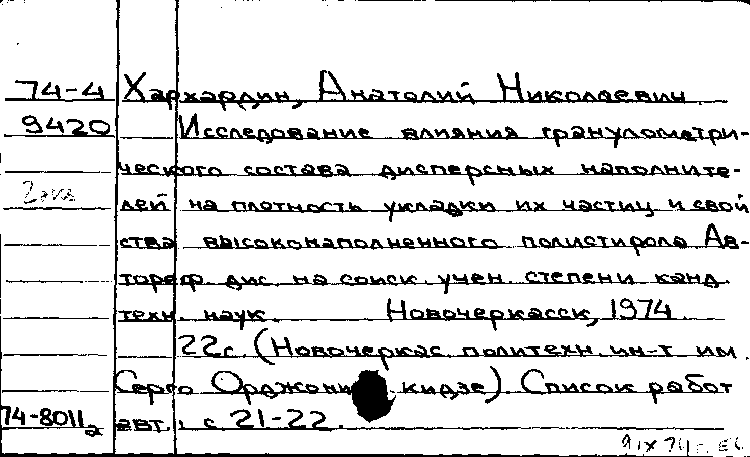 74-4 Хархардин, Анатолий Николаевич
9420 Исследование влияния гранулометри-
ческого состава дисперсных наполните-
2 экз лей на плотность укладки их частиц и свой
ства высоконаполненного полистирола Ав-
тореф. дис. на соиск. учен. степени канд.
техн. наук. Новочеркасск, 1974
22с. (Новочеркас. политехн. ин-т им.
Серго Орджоникидзе). Список работ
74-8011а авт.: с. 21-22.
9 IX 74